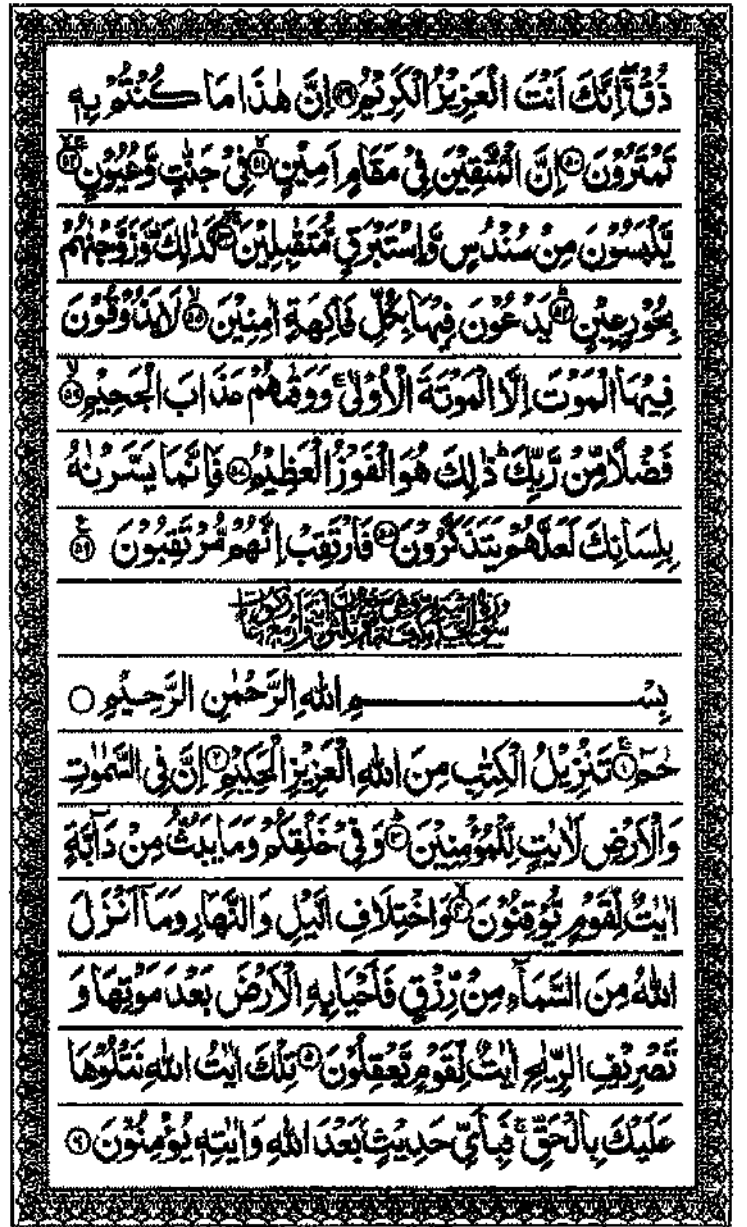 ذُقْ ۙۚ اِنَّكَ اَنْتَ الْعَزِیْزُ الْكَرِیْمُ ﴿۴۹﴾ اِنَّ هٰذَا مَا كُنْتُمْ بِهٖ
تَمْتَرُوْنَ ﴿۵۰﴾ اِنَّ الْمُتَّقِیْنَ فِیْ مَقَامٍ اَمِیْنٍ ﴿۵۱﴾ فِیْ جَنّٰتٍ وَّ عُیُوْنٍ ﴿۵۲﴾
یَّلْبَسُوْنَ مِنْ سُنْدُسٍ وَّ اِسْتَبْرَقٍ مُّتَقٰبِلِیْنَ ﴿۵۳﴾ كَذٰلِكَ وَ زَوَّجْنٰهُمْ
بِحُوْرٍ عِیْنٍ ﴿۵۴﴾ یَدْعُوْنَ فِیْهَا بِكُلِّ فَاكِهَةٍ اٰمِنِیْنَ ﴿۵۵﴾ لَا یَذُوْقُوْنَ
فِیْهَا الْمَوْتَ اِلَّا الْمَوْتَةَ الْاُوْلٰی ۚ وَ وَقٰىهُمْ عَذَابَ الْجَحِیْمِ ﴿۵۶﴾
فَضْلًا مِّنْ رَّبِّكَ ؕ ذٰلِكَ هُوَ الْفَوْزُ الْعَظِیْمُ ﴿۵۷﴾ فَاِنَّمَا یَسَّرْنٰهُ
بِلِسَانِكَ لَعَلَّهُمْ یَتَذَكَّرُوْنَ ﴿۵۸﴾ فَارْتَقِبْ اِنَّهُمْ مُّرْتَقِبُوْنَ ﴿۵۹﴾
بِسْمِ اللّٰهِ الرَّحْمٰنِ الرَّحِیْمِ
حٰمٓ ﴿۱﴾ تَنْزِیْلُ الْكِتٰبِ مِنَ اللّٰهِ الْعَزِیْزِ الْحَكِیْمِ ﴿۲﴾ اِنَّ فِی السَّمٰوٰتِ
وَ الْاَرْضِ لَاٰیٰتٍ لِّلْمُؤْمِنِیْنَ ﴿۳﴾ وَ فِیْ خَلْقِكُمْ وَ مَا یَبُثُّ مِنْ دَآبَّةٍ
اٰیٰتٌ لِّقَوْمٍ یُّوْقِنُوْنَ ﴿۴﴾ وَ اخْتِلَافِ الَّیْلِ وَ النَّهَارِ وَ مَاۤ اَنْزَلَ
اللّٰهُ مِنَ السَّمَآءِ مِنْ رِّزْقٍ فَاَحْیَا بِهِ الْاَرْضَ بَعْدَ مَوْتِهَا وَ
تَصْرِیْفِ الرِّیٰحِ اٰیٰتٌ لِّقَوْمٍ یَّعْقِلُوْنَ ﴿۵﴾ تِلْكَ اٰیٰتُ اللّٰهِ نَتْلُوْهَا
عَلَیْكَ بِالْحَقِّ ۚ فَبِاَیِّ حَدِیْثٍۭ بَعْدَ اللّٰهِ وَ اٰیٰتِهٖ یُؤْمِنُوْنَ ﴿۶﴾